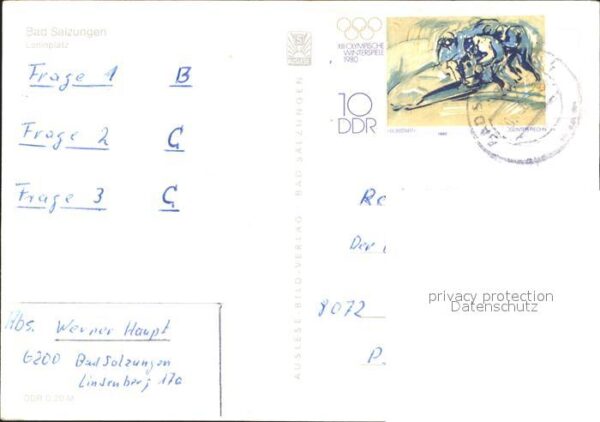 Bad Salzungen
Leninplatz
Frage 1 B
Frage 2 C
Frage 3 C
Abs. Werner Haupt
6200 Bad Salzungen
Lindenberg 17a
DDR 0,20 M
AUSLESE BILD-VERLAG BAD SALZUNGEN
XIII. OLYMPISCHE
WINTERSPIELE
1980
10
DDR
1980
BAD S
Re
Der
8072
P
privacy protection
Datenschutz